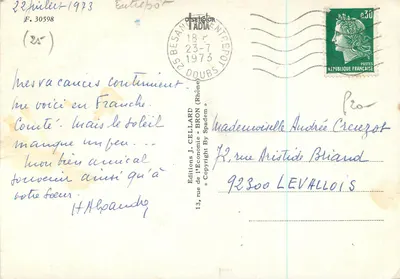 22 juillet 1973
Entrepôt
F. 30598
(25)
Mes vacances continuent...
me voici en Franche-
Comté. Mais le soleil
manque un peu...
mon bien amical
souvenir ainsi qu'à
votre sœur.
Editions J. CELLARD
13, rue de l'Economie - BRON (Rhône)
Copyright By Spadem
25 BESANÇON ENTREPOT
18 H
23-7
1973
DOUBS
0,30
POSTES
REPUBLIQUE FRANÇAISE
Mademoiselle André Creuzot
72, rue Aristide Briand
92300 LEVALLOIS